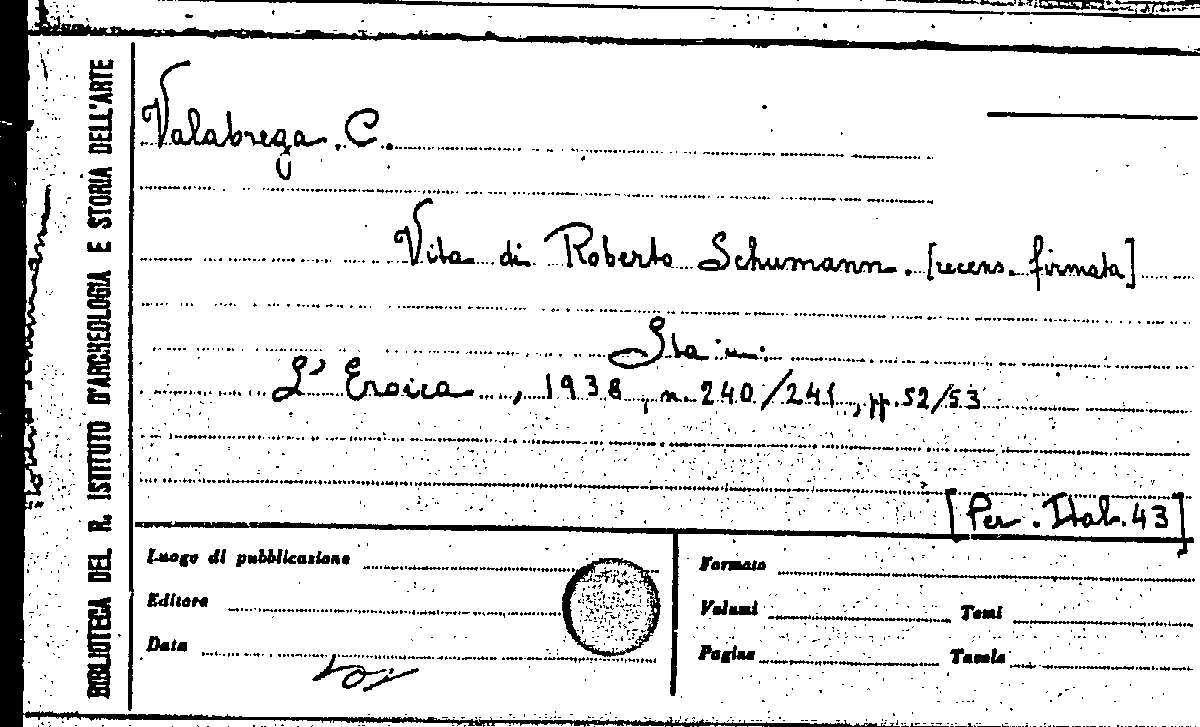 BIBLIOTECA DEL R. ISTITUTO D'ARCHEOLOGIA E STORIA DELL'ARTE
Valabrega C.
Vita di Roberto Schumann. [recens. firmata]
Sta in:
L'Eroica, 1938, n. 240/241, pp. 52/53
[Per. Ital. 43]
Luogo di pubblicazione
Editore
Data
Formato
Volumi Tomi
Pagine Tavole